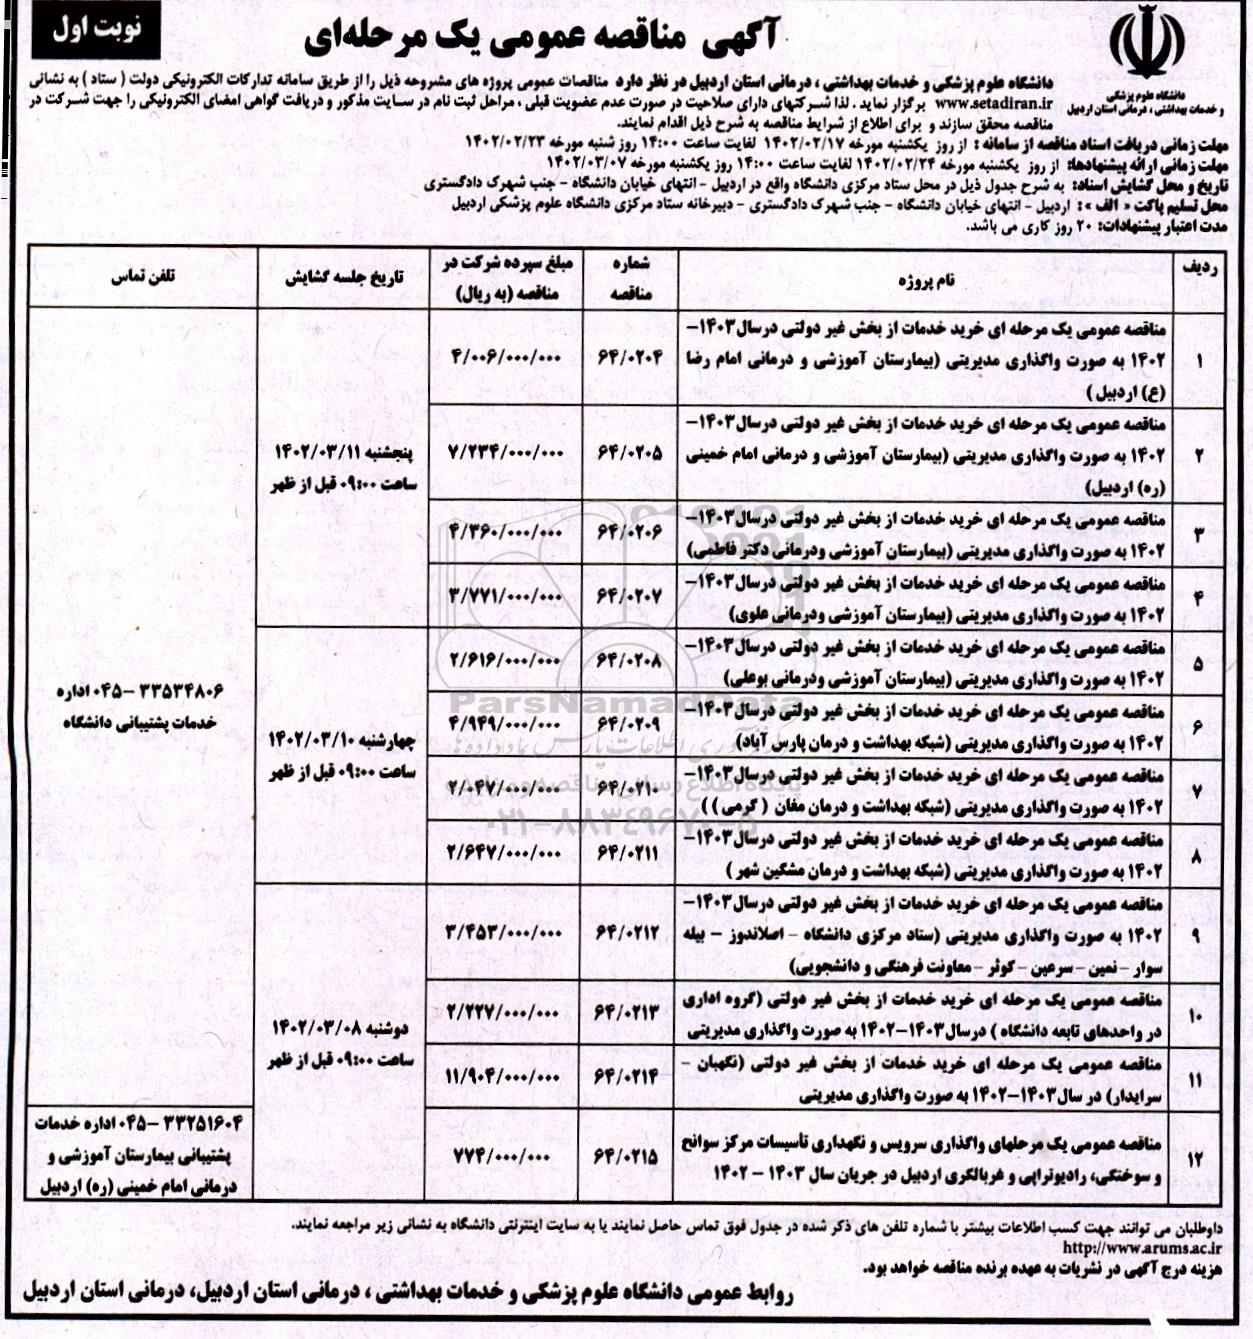 نوبت اول
آگهی مناقصه عمومی یک مرحله‌ای
دانشگاه علوم پزشکی
و خدمات بهداشتی ، درمانی استان اردبیل
دانشگاه علوم پزشکی و خدمات بهداشتی ، درمانی استان اردبیل در نظر دارد مناقصات عمومی پروژه های مشروحه ذیل را از طریق سامانه تدارکات الکترونیکی دولت ( ستاد ) به نشانی
www.setadiran.ir برگزار نماید . لذا شرکتهای دارای صلاحیت در صورت عدم عضویت قبلی ، مراحل ثبت نام در سایت مذکور و دریافت گواهی امضای الکترونیکی را جهت شرکت در
مناقصه محقق سازند و برای اطلاع از شرایط مناقصه به شرح ذیل اقدام نمایند.
مهلت زمانی دریافت اسناد مناقصه از سامانه : از روز یکشنبه مورخه ۱۴۰۲/۰۲/۱۷ لغایت ساعت ۱۴:۰۰ روز شنبه مورخه ۱۴۰۲/۰۲/۲۳
مهلت زمانی ارائه پیشنهادها: از روز یکشنبه مورخه ۱۴۰۲/۰۲/۲۴ لغایت ساعت ۱۴:۰۰ روز یکشنبه مورخه ۱۴۰۲/۰۳/۰۷
تاریخ و محل گشایش اسناد: به شرح جدول ذیل در محل ستاد مرکزی دانشگاه واقع در اردبیل - انتهای خیابان دانشگاه - جنب شهرک دادگستری
محل تسلیم پاکت « الف »: اردبیل - انتهای خیابان دانشگاه - جنب شهرک دادگستری - دبیرخانه ستاد مرکزی دانشگاه علوم پزشکی اردبیل
مدت اعتبار پیشنهادات: ۲۰ روز کاری می باشد.
ردیف
نام پروژه
شماره
مناقصه
مبلغ سپرده شرکت در
مناقصه (به ریال)
تاریخ جلسه گشایش
تلفن تماس
۱
مناقصه عمومی یک مرحله ای خرید خدمات از بخش غیر دولتی درسال۱۴۰۳-
۱۴۰۲ به صورت واگذاری مدیریتی (بیمارستان آموزشی و درمانی امام رضا
(ع) اردبیل )
۶۴/۰۲۰۴
۴/۰۰۶/۰۰۰/۰۰۰
۲
مناقصه عمومی یک مرحله ای خرید خدمات از بخش غیر دولتی درسال۱۴۰۳-
۱۴۰۲ به صورت واگذاری مدیریتی (بیمارستان آموزشی و درمانی امام خمینی
(ره) اردبیل)
۶۴/۰۲۰۵
۷/۲۳۴/۰۰۰/۰۰۰
پنجشنبه ۱۴۰۲/۰۳/۱۱
ساعت ۰۹:۰۰ قبل از ظهر
۳
مناقصه عمومی یک مرحله ای خرید خدمات از بخش غیر دولتی درسال۱۴۰۳-
۱۴۰۲ به صورت واگذاری مدیریتی (بیمارستان آموزشی ودرمانی دکتر فاطمی)
۶۴/۰۲۰۶
۴/۳۶۰/۰۰۰/۰۰۰
۴
مناقصه عمومی یک مرحله ای خرید خدمات از بخش غیر دولتی درسال۱۴۰۳-
۱۴۰۲ به صورت واگذاری مدیریتی (بیمارستان آموزشی ودرمانی علوی)
۶۴/۰۲۰۷
۳/۷۷۱/۰۰۰/۰۰۰
۵
مناقصه عمومی یک مرحله ای خرید خدمات از بخش غیر دولتی درسال۱۴۰۳-
۱۴۰۲ به صورت واگذاری مدیریتی (بیمارستان آموزشی ودرمانی بوعلی)
۶۴/۰۲۰۸
۲/۶۱۶/۰۰۰/۰۰۰
۰۴۵- ۳۳۵۳۴۸۰۶ اداره
خدمات پشتیبانی دانشگاه
۶
مناقصه عمومی یک مرحله ای خرید خدمات از بخش غیر دولتی درسال۱۴۰۳-
۱۴۰۲ به صورت واگذاری مدیریتی (شبکه بهداشت و درمان پارس آباد)
۶۴/۰۲۰۹
۴/۹۴۹/۰۰۰/۰۰۰
چهارشنبه ۱۴۰۲/۰۳/۱۰
ساعت ۰۹:۰۰ قبل از ظهر
۷
مناقصه عمومی یک مرحله ای خرید خدمات از بخش غیر دولتی درسال۱۴۰۳-
۱۴۰۲ به صورت واگذاری مدیریتی (شبکه بهداشت و درمان مغان ( گرمی ) )
۶۴/۰۲۱۰
۲/۰۴۷/۰۰۰/۰۰۰
۸
مناقصه عمومی یک مرحله ای خرید خدمات از بخش غیر دولتی درسال۱۴۰۳-
۱۴۰۲ به صورت واگذاری مدیریتی (شبکه بهداشت و درمان مشگین شهر )
۶۴/۰۲۱۱
۲/۶۴۷/۰۰۰/۰۰۰
۹
مناقصه عمومی یک مرحله ای خرید خدمات از بخش غیر دولتی درسال۱۴۰۳-
۱۴۰۲ به صورت واگذاری مدیریتی (ستاد مرکزی دانشگاه - اصلاندوز - بیله
سوار - نمین - سرعین - کوثر - معاونت فرهنگی و دانشجویی)
۶۴/۰۲۱۲
۳/۴۵۳/۰۰۰/۰۰۰
۱۰
مناقصه عمومی یک مرحله ای خرید خدمات از بخش غیر دولتی (گروه اداری
در واحدهای تابعه دانشگاه ) درسال۱۴۰۳-۱۴۰۲ به صورت واگذاری مدیریتی
۶۴/۰۲۱۳
۲/۲۲۷/۰۰۰/۰۰۰
دوشنبه ۱۴۰۲/۰۳/۰۸
ساعت ۰۹:۰۰ قبل از ظهر
۱۱
مناقصه عمومی یک مرحله ای خرید خدمات از بخش غیر دولتی (نگهبان -
سرایدار) در سال۱۴۰۳-۱۴۰۲ به صورت واگذاری مدیریتی
۶۴/۰۲۱۴
۱۱/۹۰۴/۰۰۰/۰۰۰
۱۲
مناقصه عمومی یک مرحلهای واگذاری سرویس و نگهداری تأسیسات مرکز سوانح
و سوختگی، رادیوتراپی و غربالگری اردبیل در جریان سال ۱۴۰۳ - ۱۴۰۲
۶۴/۰۲۱۵
۷۷۴/۰۰۰/۰۰۰
۰۴۵- ۳۳۲۵۱۶۰۴ اداره خدمات
پشتیبانی بیمارستان آموزشی و
درمانی امام خمینی (ره) اردبیل
ParsNamadData
۰۲۱-۸۸۳۴۹۶۷۰-۵
داوطلبان می توانند جهت کسب اطلاعات بیشتر با شماره تلفن های ذکر شده در جدول فوق تماس حاصل نمایند یا به سایت اینترنتی دانشگاه به نشانی زیر مراجعه نمایند.
http://www.arums.ac.ir
هزینه درج آگهی در نشریات به عهده برنده مناقصه خواهد بود.
روابط عمومی دانشگاه علوم پزشکی و خدمات بهداشتی ، درمانی استان اردبیل، درمانی استان اردبیل